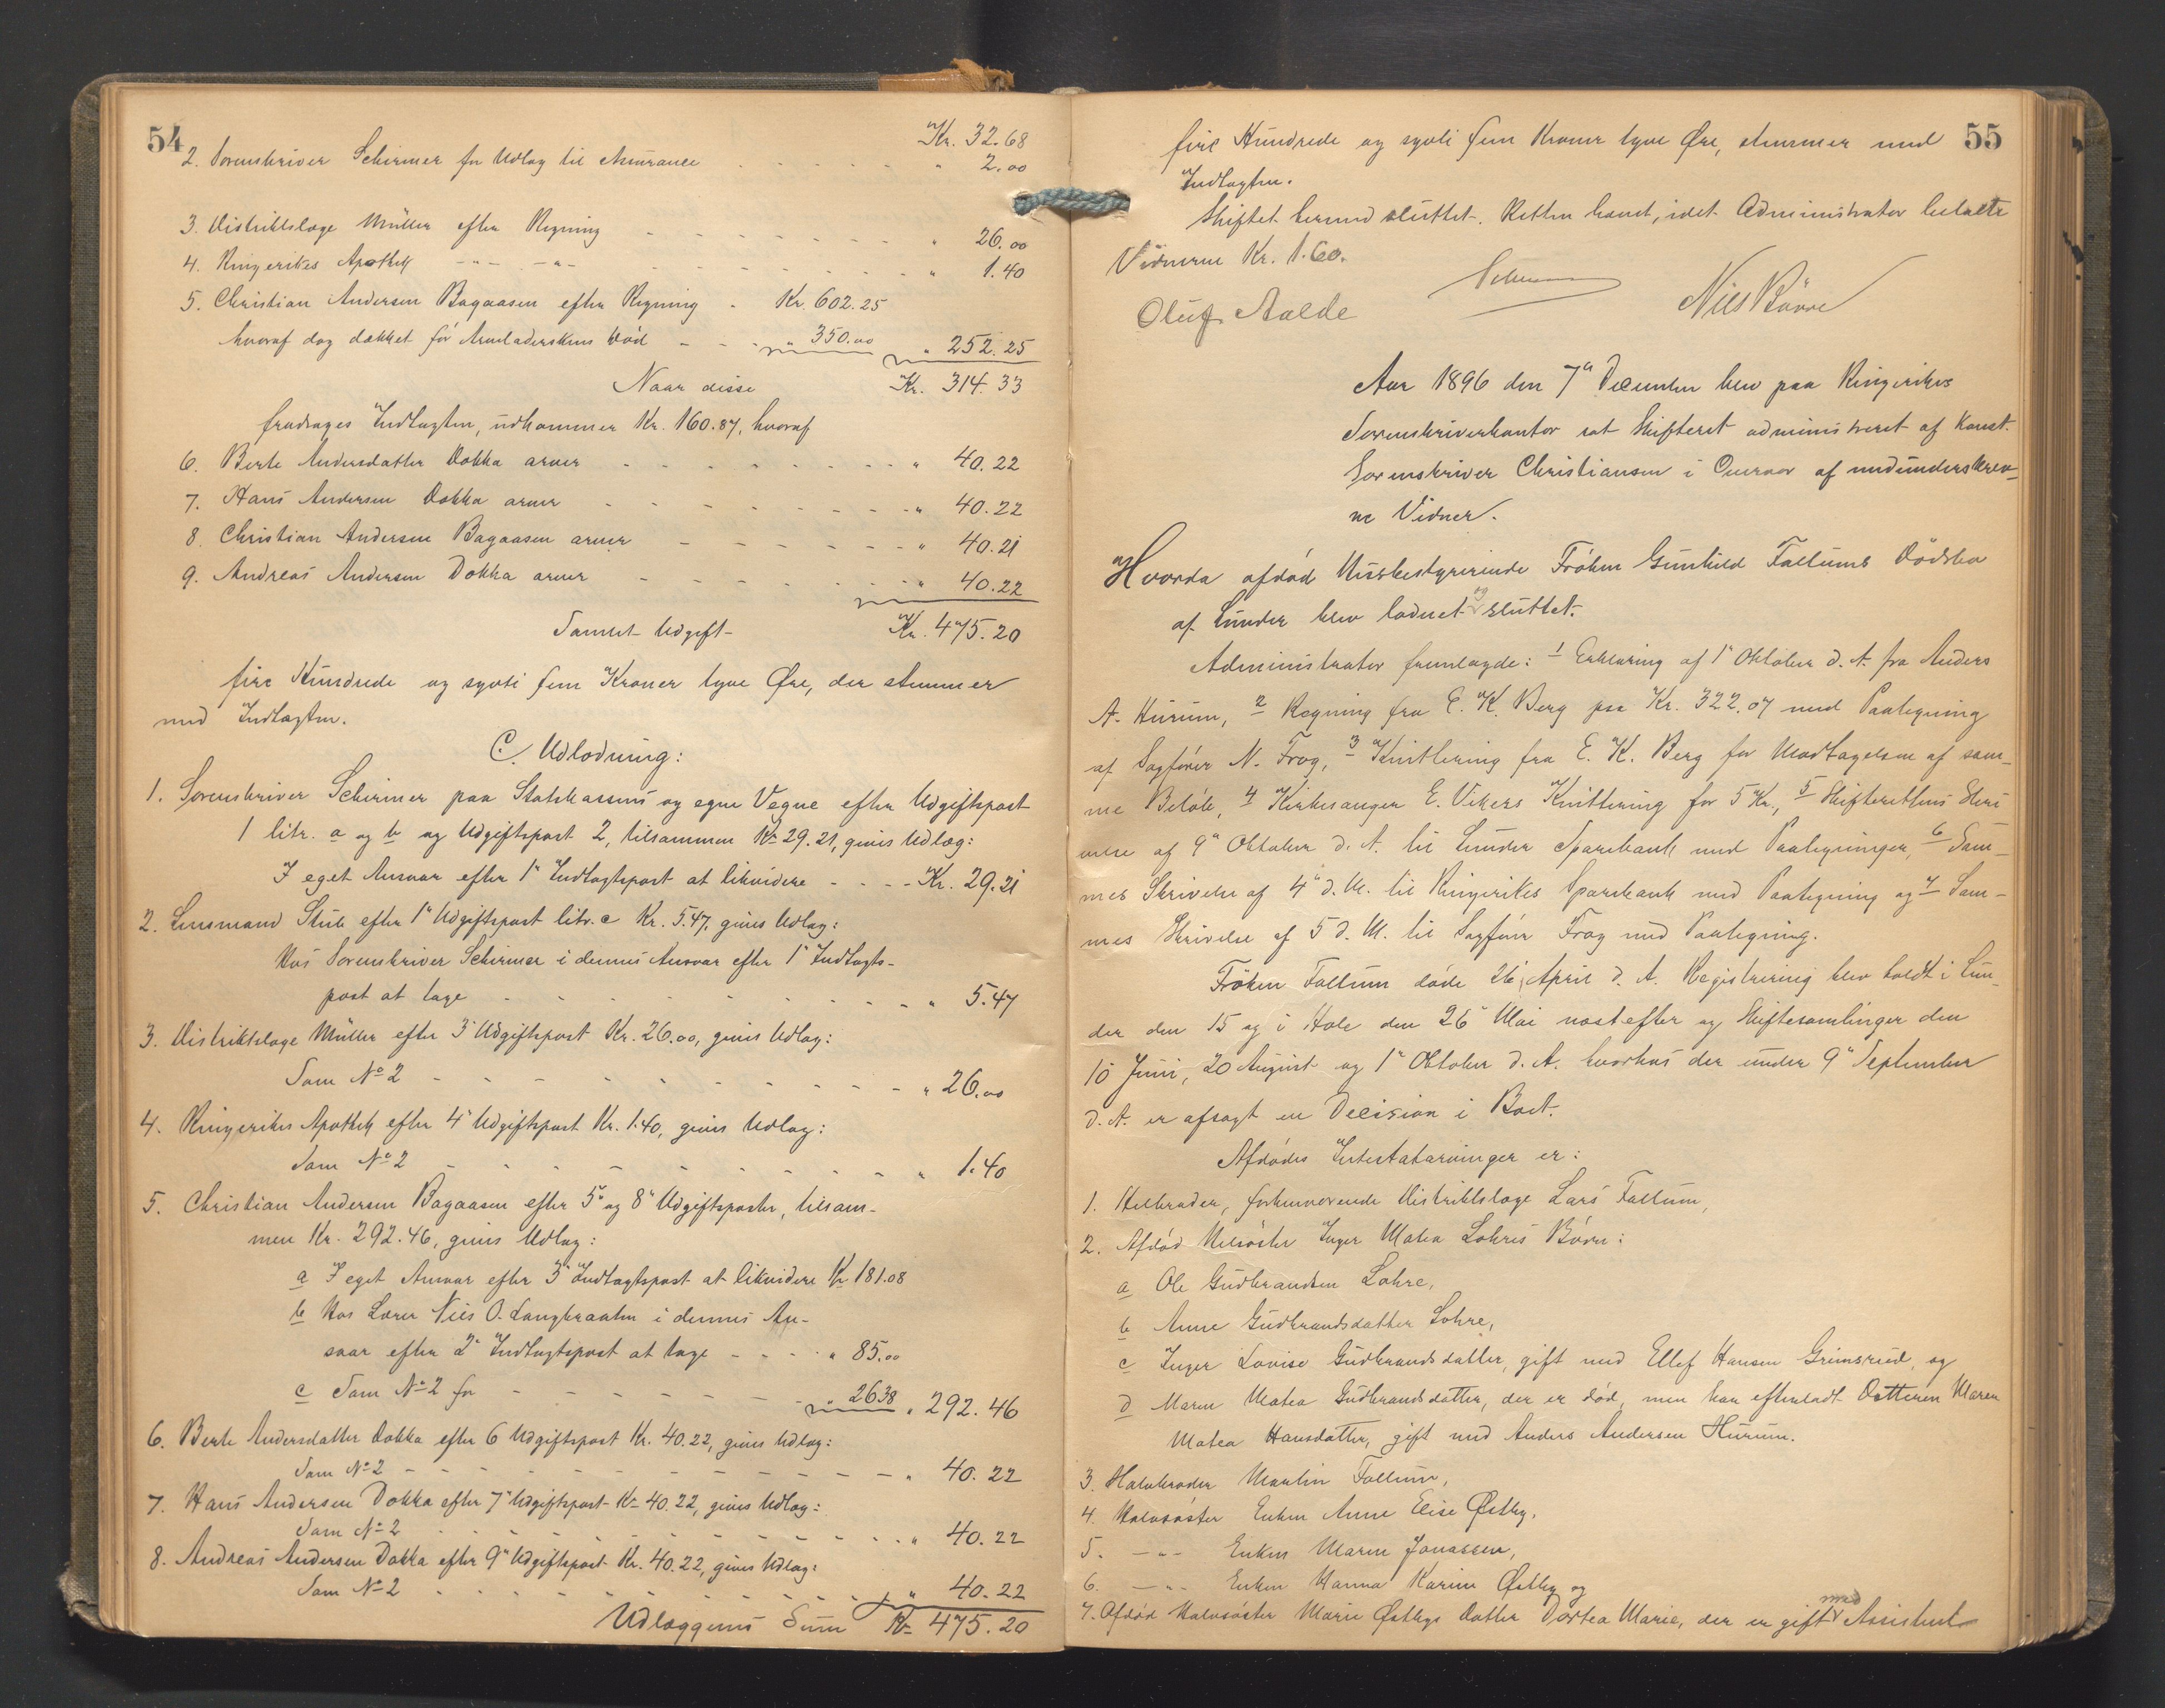 54
Kr. 32.68
2. Sorenskriver Schirmer for Udlæg til Assurance - - - - - " 2.00
3. Distriktslæge Müller efter Regning - - - - - - - " 26.00
4. Ringerikes Apothek -"- -"- - - - - - - - " 1.40
5. Christian Andersen Bagaasen efter Regning - Kr. 602.25
hvoraf dog dækket før Arveladerskens Död - - - " 350.00 " 252.25
Naar disse Kr. 314.33
fradrages Indtægten, udkommer Kr. 160.87, hvoraf
6. Berte Andersdatter Dokka arver - - - - - - - - " 40.22
7. Hans Andersen Dokka arver - - - - - - - - " 40.22
8. Christian Andersen Bagaasen arver - - - - - - - " 40.21
9. Andreas Andersen Dokka arver - - - - - - - " 40.22
Samlet Udgift - Kr. 475.20
fire Hundrede og sytti fem Kroner tyve Øre, der stemmer
med Indtægten.
C. Udlodning:
1. Sorenskriver Schirmer paa Statskassens og egne Vegne efter Udgiftspost
1 litr. a og b og Udgiftspost 2, tilsammen Kr 29.21, gives Udlæg:
I eget Ansvar efter 1ste Indtægtspost at likvidere - - - - Kr. 29.21
2. Lensmand Stub efter 1ste Udgiftspost litr. c Kr. 5.47, gives Udlæg:
Hos Sorenskriver Schirmer i dennes Ansvar efter 1ste Indtægts-
post at tage - - - - - - - - - - " 5.47
3. Distriktslæge Müller efter 3' Udgiftspost Kr. 26.00, gives Udlæg:
Som No 2 - - - - - - - - - - " 26.00
4. Ringerikes Apothek efter 4' Udgiftspost Kr. 1.40, gives Udlæg:
Som No 2 - - - - - - - - - - " 1.40
5. Christian Andersen Bagaasen efter 5' og 8' Udgiftsposter, tilsam-
men Kr. 292.46, gives Udlæg:
a I eget Ansvar efter 3' Indtægtspost at likvidere Kr 181.08
b Hos Lærer Nils O. Langbraaten i dennes An-
svar efter 2' Indtægtspost at tage - - - - " 85.00
c Som No 2 for - - - - - - - - " 26.38 " 292.46
6. Berte Andersdatter Dokka efter 6 Udgiftspost Kr. 40.22, gives Udlæg:
Som No 2 - - - - - - - - - - " 40.22
7. Hans Andersen Dokka efter 7' Udgiftspost Kr 40.22, gives Udlæg:
Som No 2 - - - - - - - - - - " 40.22
8. Andreas Andersen Dokka efter 9' Udgiftspost Kr. 40.22, gives Udlæg:
Som No 2 - - - - - - - - - - " 40.22
Udlæggenes Sum Kr 475.20
55
fire Hundrede og sytti fem Kroner tyve Øre, stemmer med
Indtægten.
Skiftet hermed sluttet. Retten hævet, idet Administrator betalte
Vidnerne Kr. 1.60.
Schirmer
Oluf Aalde Nils Børre
Aar 1896 den 7de December blev paa Ringerikes
Sorenskriverkontor sat Skifteret administreret af Konst.
Sorenskriver Christiansen i Overvær af medunderskrev-
ne Vidner.
Hvorda afdød Husbestyrerinde Frøken Gunhild Fallums Dödsbo
af Lunder blev lodnet og sluttet.
Administrator fremlagde: 1 Erklæring af 1' Oktober d. A. fra Anders
A. Hurum, 2 Regning fra E. K. Berg paa Kr. 322.07 med Paategning
af Sagfører N. Frog, 3 Kvittering fra E. K. Berg for Modtagelsen af sam-
me Beløb, 4 Kirkesanger E. Vikers Kvittering for 5 Kr., 5 Skifterettens Skri
velse af 9' Oktober d. A. til Lunder Sparebank med Paategninger, 6 Sam-
mes Skrivelse af 4' d. M. til Ringerikes Sparebank med Paategning og 7 Sam-
mes Skrivelse af 5 d. M. til Sagfører Frog med Paategning.
Frøken Fallum døde 26' April d. A. Registrering blev holdt i Lun-
der den 15 og i Hole den 26' Mai næstefter og Skiftesamlinger den
10 Juni, 20 August og 1' Oktober d. A. hvorhos der under 9' September
d. A. er afsagt en Decision i Boet.
Afdødes Intestatarvinger er:
1. Helbroder, forhenværende Distriktslæge Lars Fallum,
2. Afdød Helsøster Inger Matea Lohres Børn:
a Ole Gudbrandsen Lohre,
b Anne Gudbrandsdatter Lohre,
c Inger Lovise Gudbrandsdatter, gift med Ellef Hansen Grimsrud, og
d Maren Matea Gudbrandsdatter, der er død, men har efterladt Datteren Maren
Matea Hansdatter, gift med Anders Andersen Hurum.
3. Halvbroder Martin Fallum,
4. Halvsøster Enken Anne Elise Østby,
5. -"- Enken Maren Jonassen,
6. -"- Enken Hanna Karine Østby og
7. Afdød Halvsøster Marie Østbys Datter Dortea Marie, der er gift med Assistent